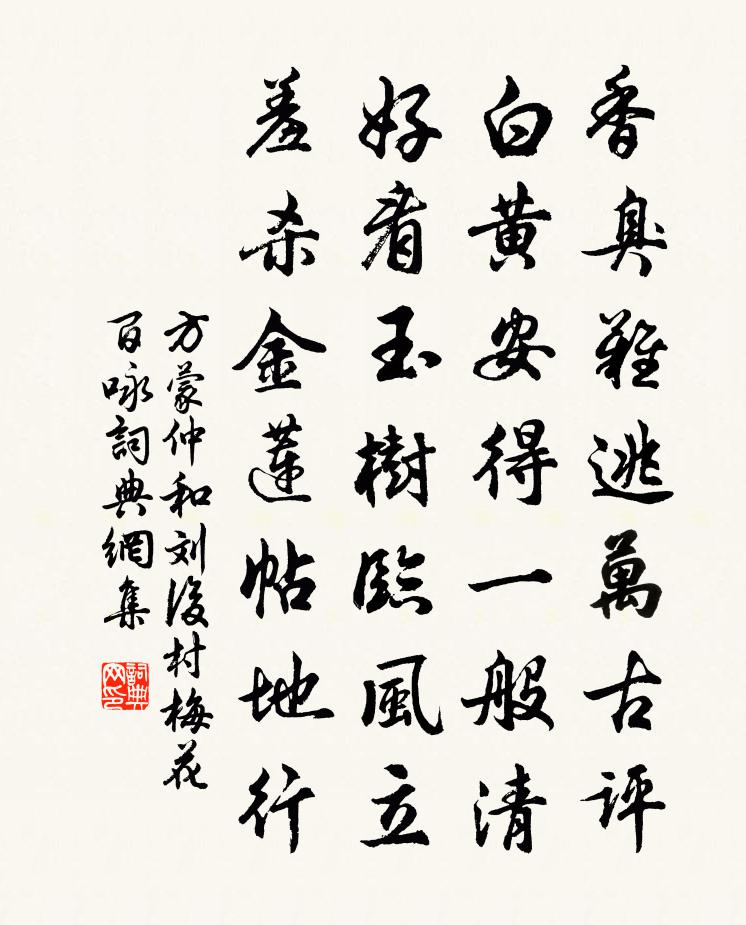 香臭難逃萬古評
白黄安得一般清
好看玉樹臨風立
羞杀金蓮帖地行
方蒙仲和刘後村梅花
百咏詞典網集
詞典
网印